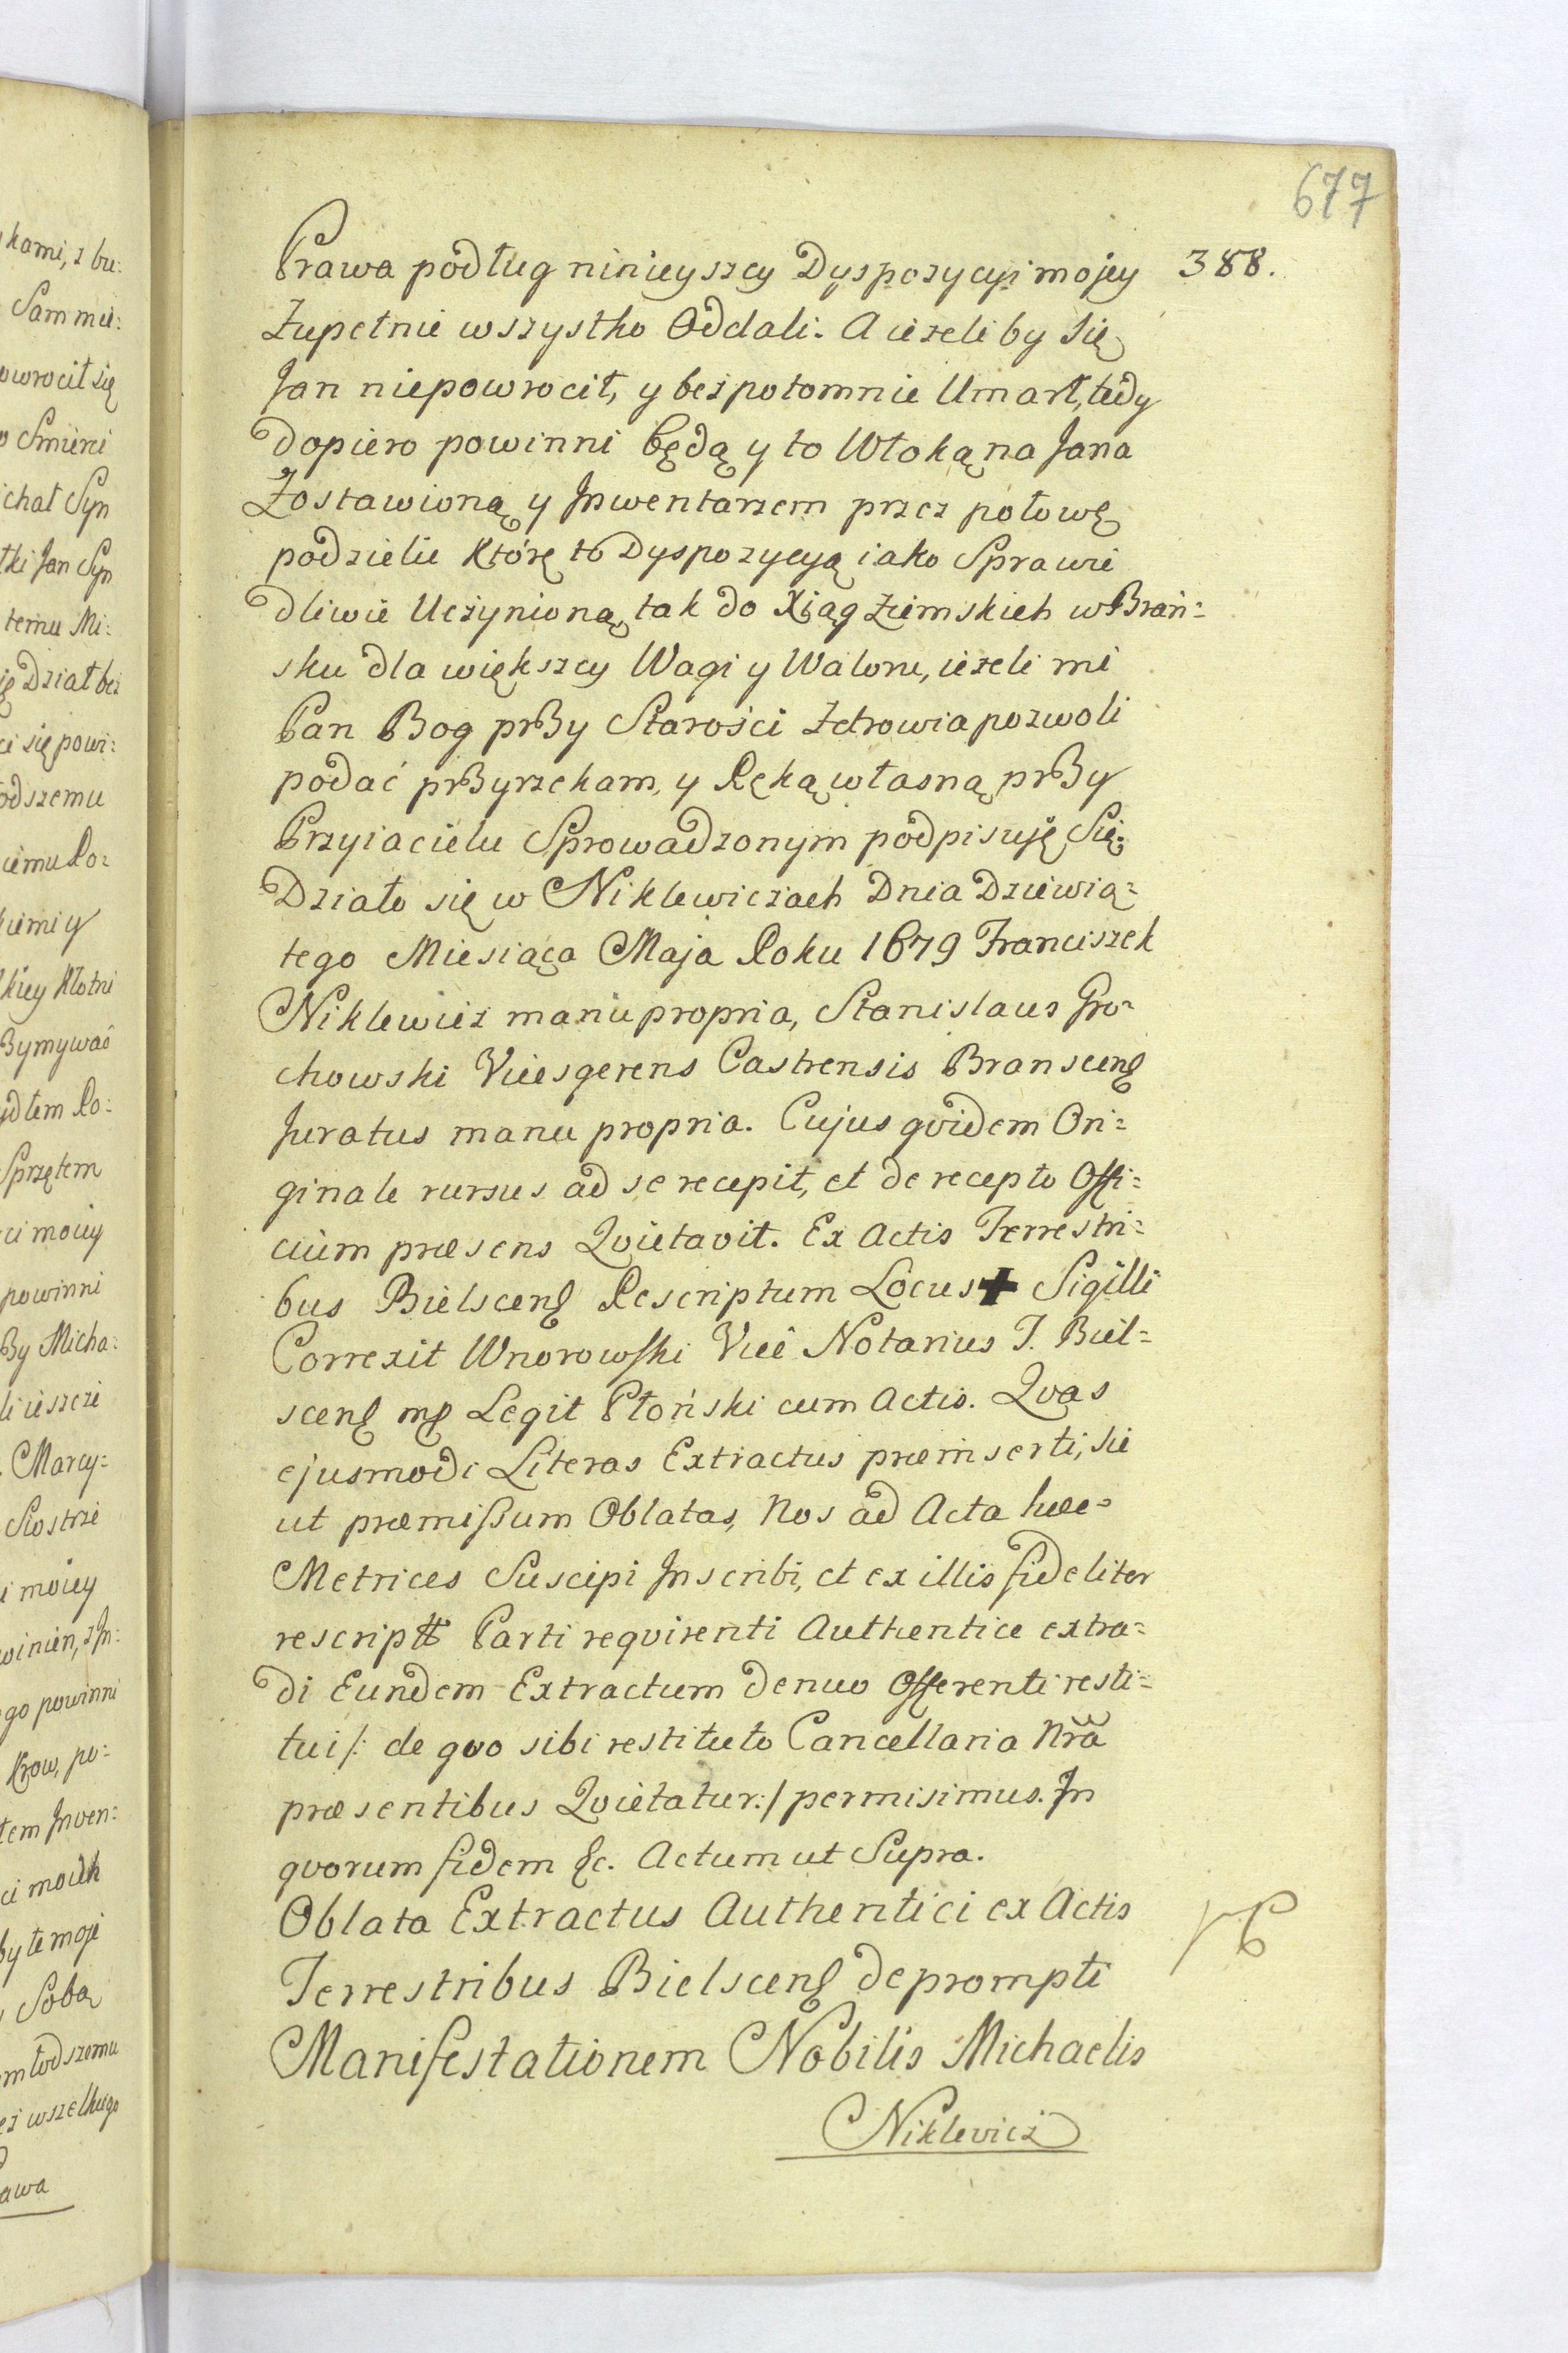 677
388.
Prawa podług ninieyszey Dyspozycyi mojey
Zupełnie wszystko Oddali. A ieżeli by się
Jan niepowrocił, y bezpotomnie Umarł, tedy
dopiero powinni będą y to Włoką na Jana
Zostawioną y Inwentarzem przez połowę
podzielic Którę to Dyspozycyą iako Sprawie
dliwie Uczynioną, tak do Xiąg Ziemskich w Brań=
sku dla większey Wagi y Waloru, ieżeli mi
Pan Bog przy Starości Zdrowia pozwoli
podać przyrzekam, y Ręką własną przy
Przyiacielu Sprowadzonym podpisuję Się.
Działo się w Niklewiczach Dnia Dziewią=
tego Miesiąca Maja Roku 1679 Franciszek
Niklewicz manu propria, Stanislaus Gro=
chowski Vicesgerens Castrensis Branscens
Juratus manu propria. Cujus qvidem Ori=
ginale rursus ad se recepit, et de recepto Offi=
cium præsens Qvietavit. Ex Actis Terrestri=
bus Bielscens Rescriptum Locus + Sigilli
Correxit Wnorowski Vice Notarius T. Biel=
scens mp Legit Płoński cum Actis. Qvas
ejusmodi Literas Extractus præinserti, sic
ut præmissum Oblatas, Nos ad Acta hæc=
Metrices Suscipi Inscribi, et ex illis fideliter
rescriptt Parti reqvirenti Authentice extra=
di Eundem Extractum denuo Offerenti resti=
tui /: de qvo sibi restituto Cancellaria Nra
præsentibus Qvietatur :/ permisimus. In
qvorum fidem &c. Actum ut Supra.
Oblata Extractus Authentici ex Actis
Terrestribus Bielscens deprompti
Manifestationem Nobilis Michaelis
Niklevicz
kami, z bu:
Sam mie:
owrocił się
o Smierci
chał Syn
tki Jan Syn
temu Mi:
ię Dział bez
ci się powi:
odszemu
iemi y
kiey Kłotni
ydłem Ro:
Sprzętem
ci moiey
powinni
By Micha:
li ieszcze
Marcy=
Siostrze
i moiey
winien, z In:
go powinni
Krow, po=
tem Inven:
ci moich
by te moje
Sobą
młodszemu
ez wszelkiego
awa